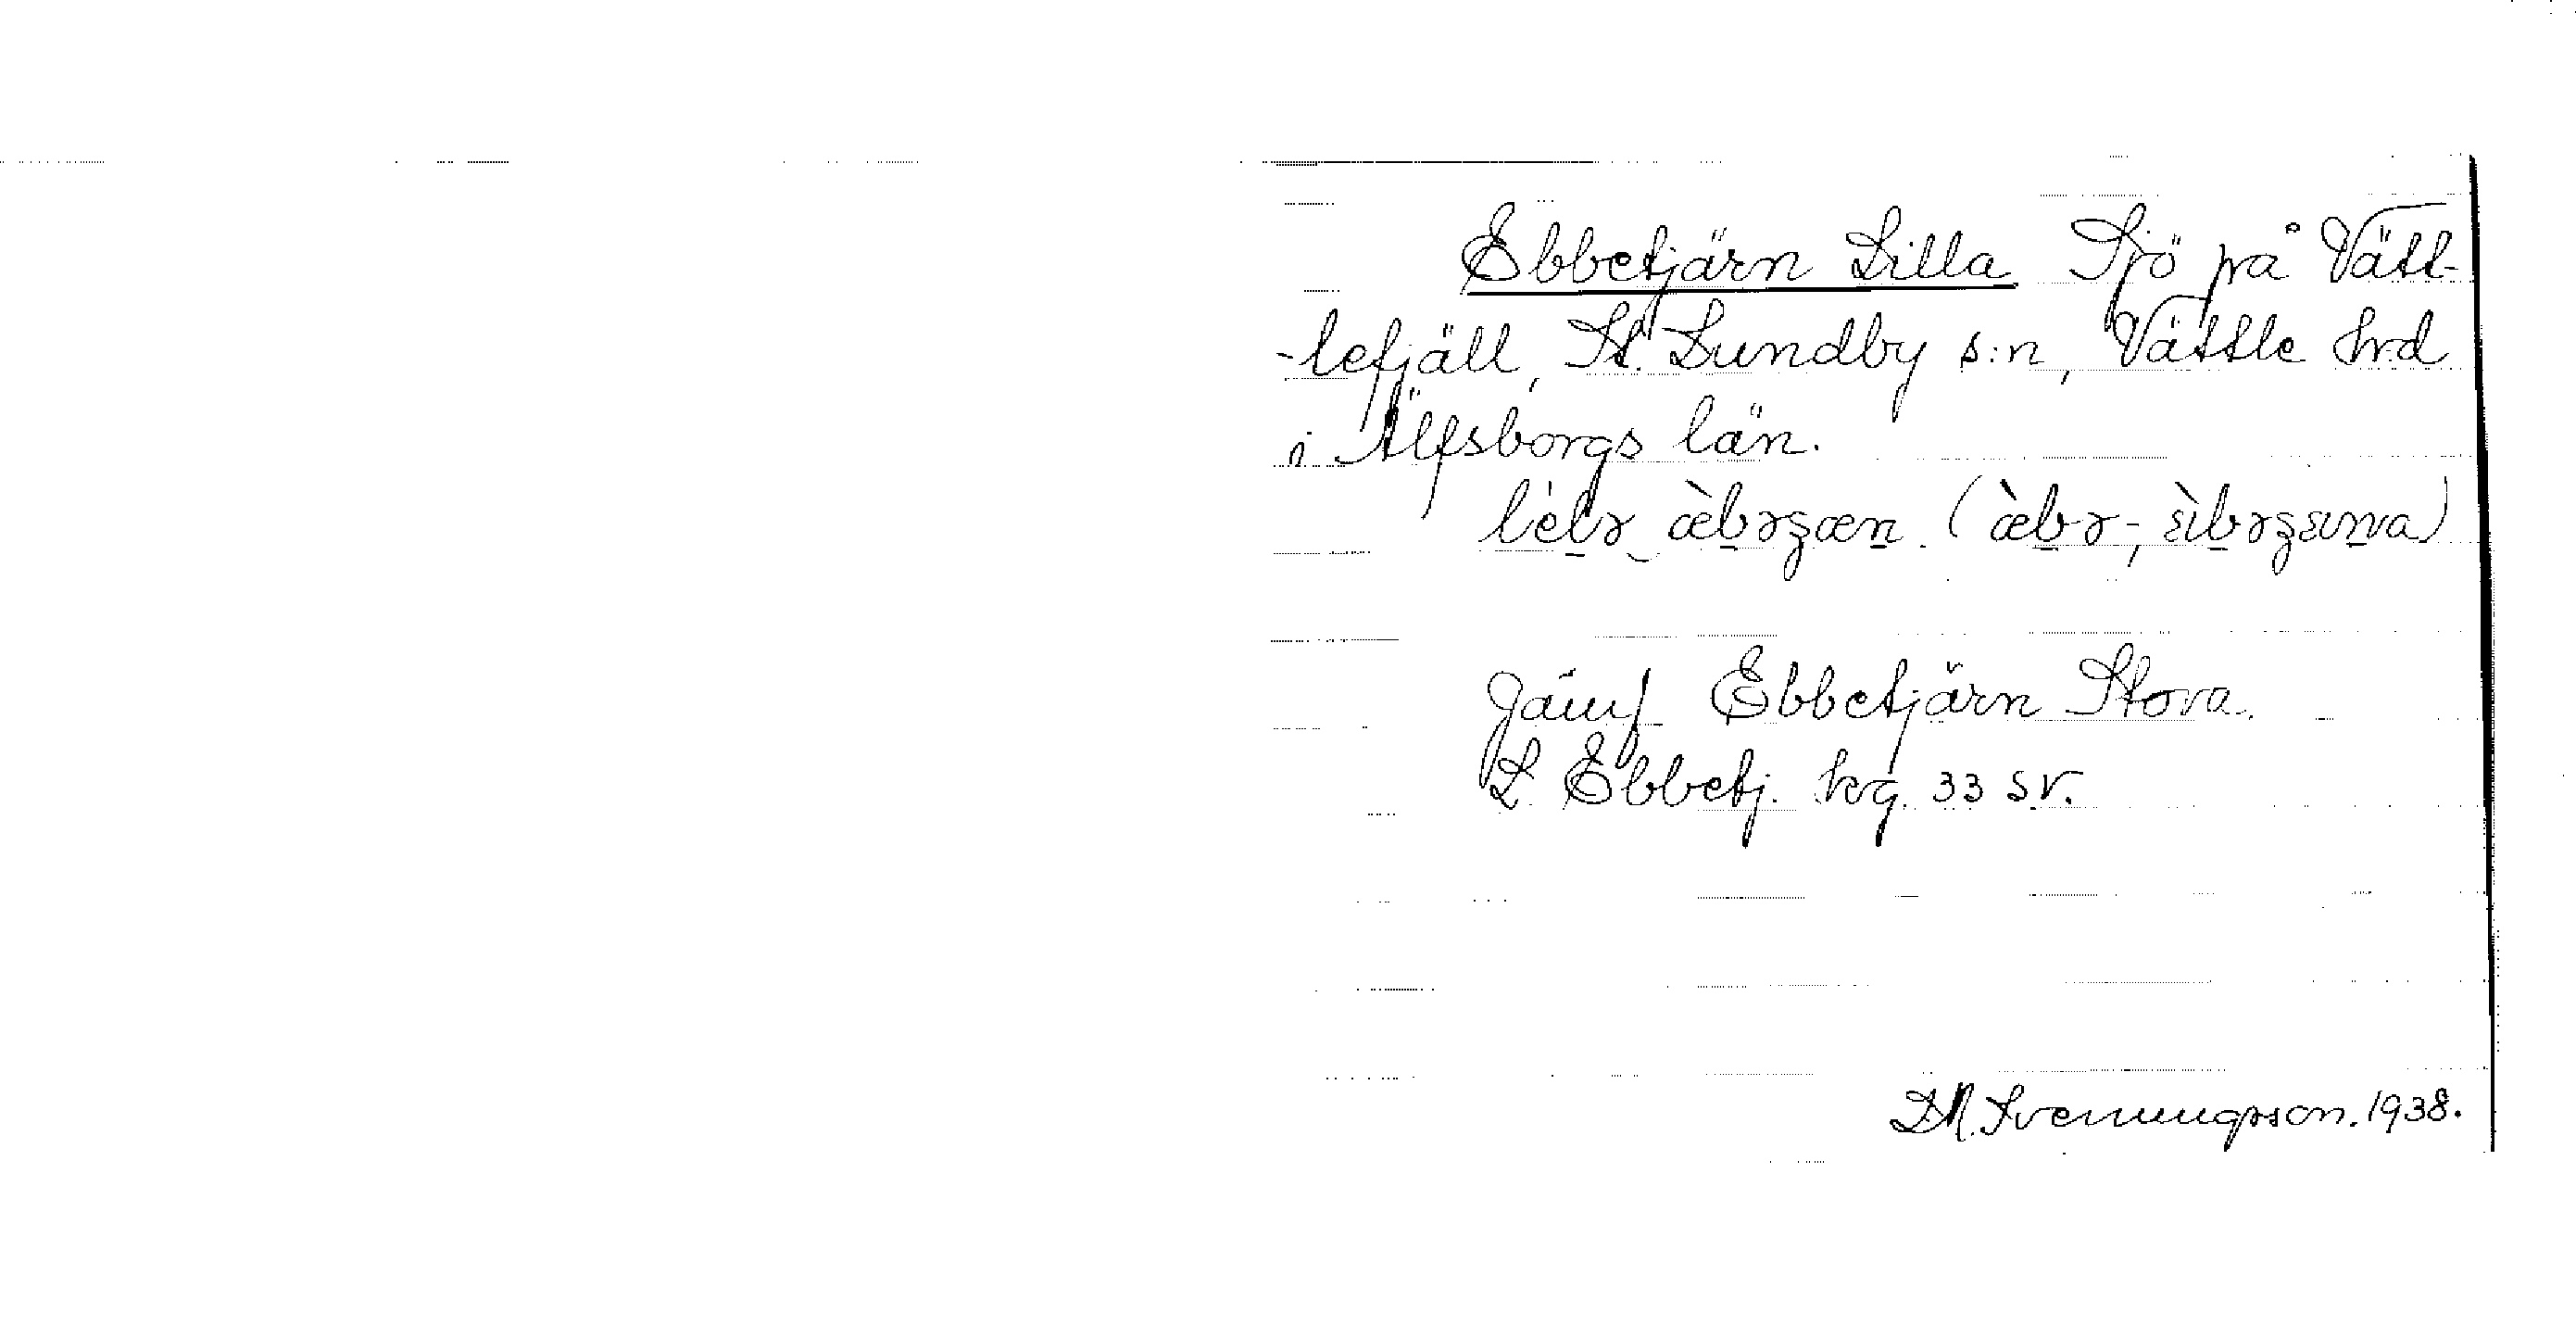 Ebbetjärn Lilla Sjö på Vätt-
-lefjäll, St. Lundby s:n, Vättle hrd
i Älfsborgs län.
Jämf Ebbetjärn Stora.
L. Ebbetj. kg. 33 SV.
D.A. Svenungsson. 1938.